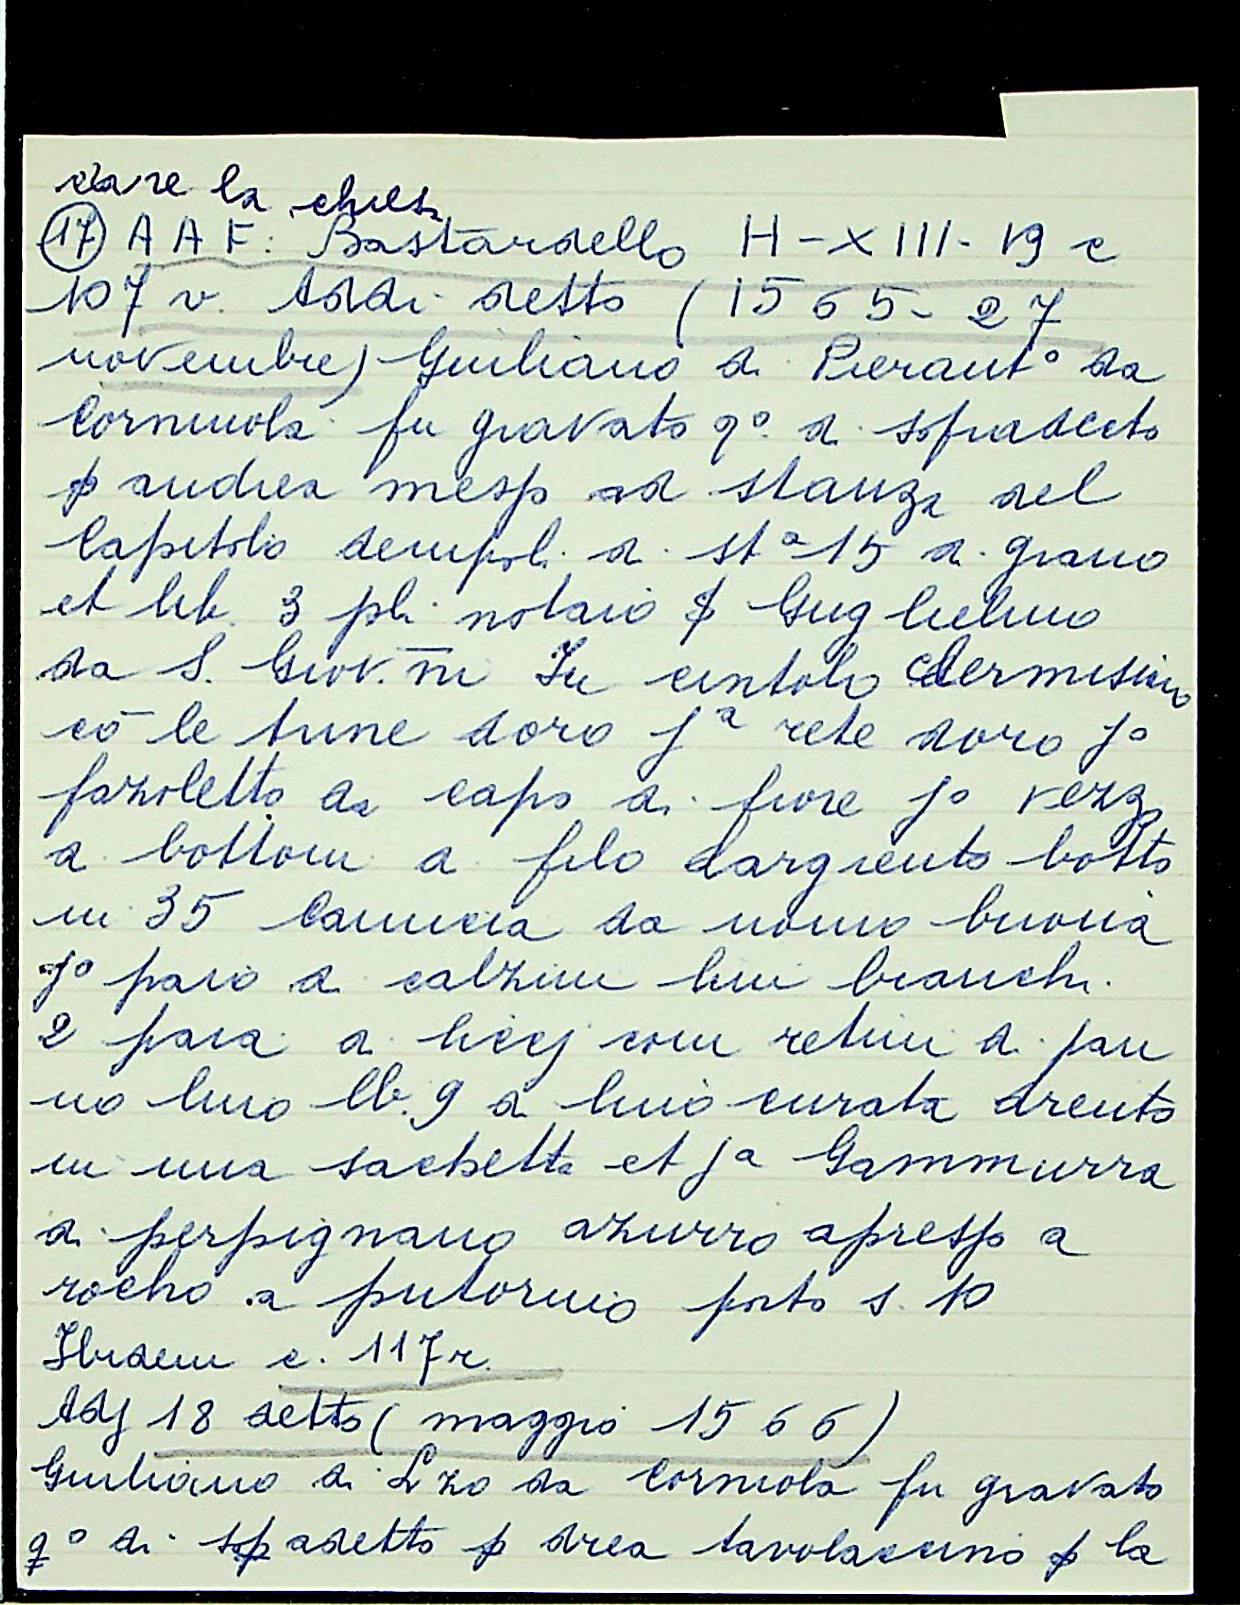 dare la chiesa
(17) A A F: Bastardello H-XIII-19 c
107 v. Addi detto (1565-27
novembre) Giuliano di Pierantº da
Corniuola fu gravato qº di sopradecto
p andrea messo ad stanza del
Capitolo dempoli di stª 15 di grano
et lib. 3 pli notaio p Guglielmo
da S. Giov.n̄i In cintolo chermisino
cō le trine doro jª rete doro jº
fazoletto da capo di fiore jº vezzo
a bottoni a filo dargiento botto
ni 35 Camicia da uomo buona
jº paio di calzini lini bianchi
2 para di liccj con retini di pan
no lino lb. 9 di lino curata drento
in una sachetta et jª Gammurra
di perpignano azurro apresso a
rocho di porto s. 10
Ibidem c. 117r.
Adj 18 detto (maggio 1566)
Giuliano di Lzo da Corniola fu gravato
qº di sopadetto p drea tavolaccino p la